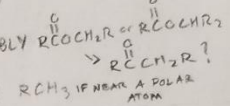 O O
BLY RCOCH₂R or RCOCHR₂
O
>> RCCH₂R ?
RCH₃ IF NEAR A POLAR
ATOM